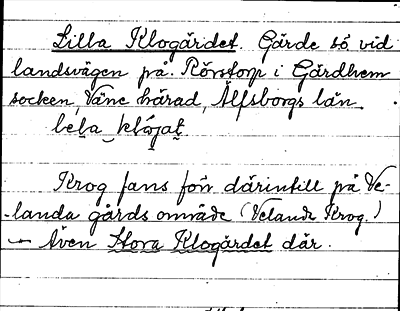 Lilla Klogärdet. Gärde sö. vid
landsvägen på Rörstorp i Gärdhem
socken, Väne härad, Älfsborgs län.
Krog fans förr därintill på Ve-
landa gårds område (Velanda Krog.)
– Även Stora Klogärdet där.